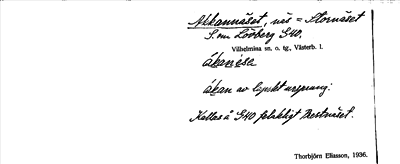 Akkannäset, näs = Stornäset
S. om Lövberg G40.
Vilhelmina sn. o. tg., Västerb. l.
åkan av lapskt ursprung:
Kallas å G40 felaktigt Bestnäset.
Thorbjörn Eliasson, 1936.